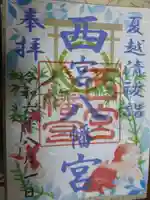 夏越清祓詣
西宮八幡宮
奉拝
令和六年八月一日